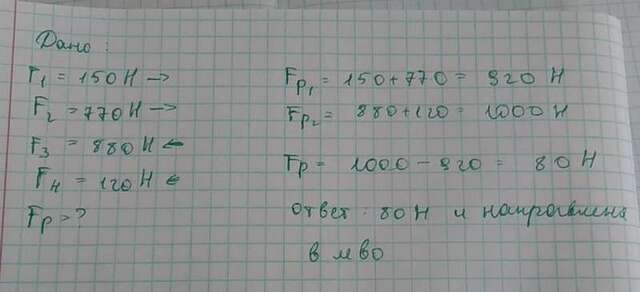 Дано:
F₁ = 150 Н →
F₂ = 770 Н →
F₃ = 880 Н ←
F₄ = 120 Н ←
Fр = ?
Fр₁ = 150 + 770 = 920 Н
Fр₂ = 880 + 120 = 1000 Н
Fр = 1000 - 920 = 80 Н
ответ: 80 Н и направлена
в лево